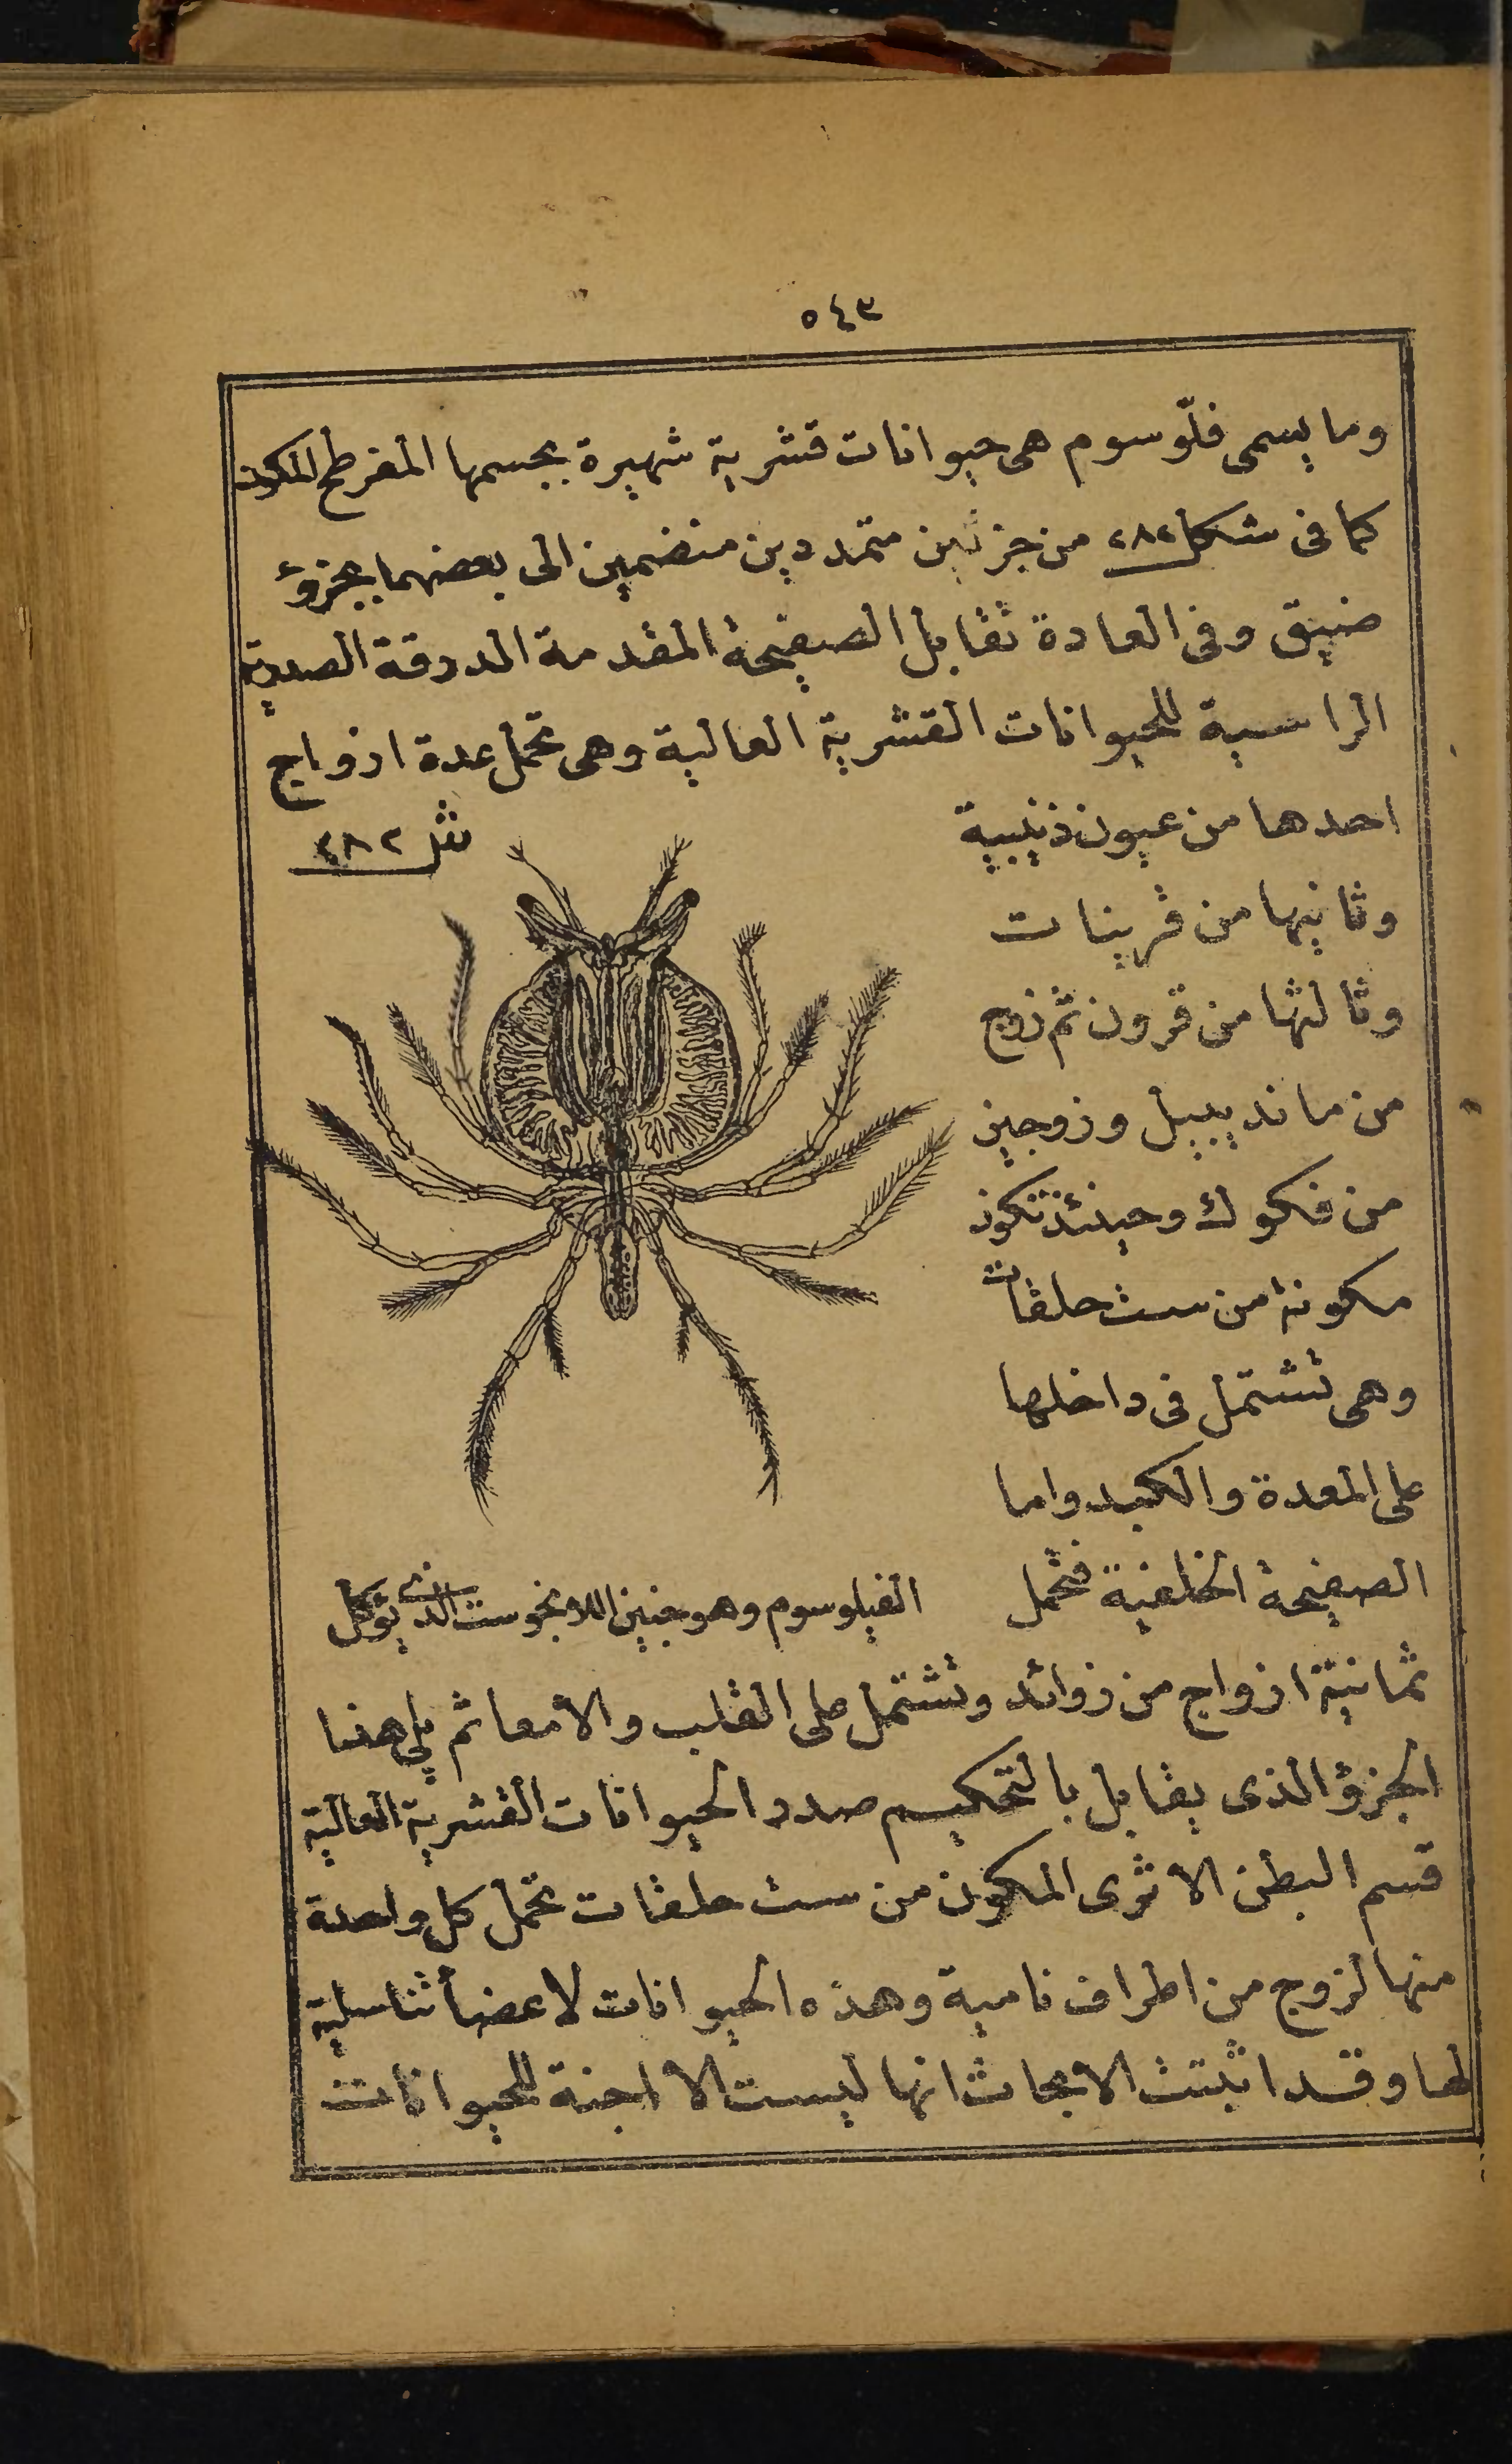 ٥٤٣
وما يسمى فلّوسوم هى حيوانات قشرية شهيرة بجسمها المفرطح المكون
كما فى شكل ٢٨٢ من جزئين متمددين منضمين الى بعضهما بجزؤ
ضيق وفى العادة تقابل الصفيحة المقدمة الدرقة الصدرية
الراسية للحيوانات القشرية العالية وهى تحمل عدة ازواج
احدها من عيون ذنيبية
شكل ٢٨٢
وثانيها من قرينات
وثالثها من قرون ثم زوج
من مانديبيل وزوجين
من فكوك وحينئذ تكون
مكونة من ست حلقات
وهى تشتمل فى داخلها
على المعدة والكبد واما
الصفيحة الخلفية فتحمل
الفيلوسوم وهو جنين اللانجوست الذى يؤكل
ثمانية ازواج من زوائد وتشتمل على القلب والأمعا ثم يلى هذا
الجزؤ الذى يقابل بالتحكيم صدر الحيوانات القشرية العالية
قسم البطن الاثرى المكون من ست حلقات تحمل كل واحدة
منها لزوج من اطراف نامية وهذه الحيوانات لا عضأ تناسلية
لها وقد اثبتت الابحاث انها ليست الا اجنة للحيوانات